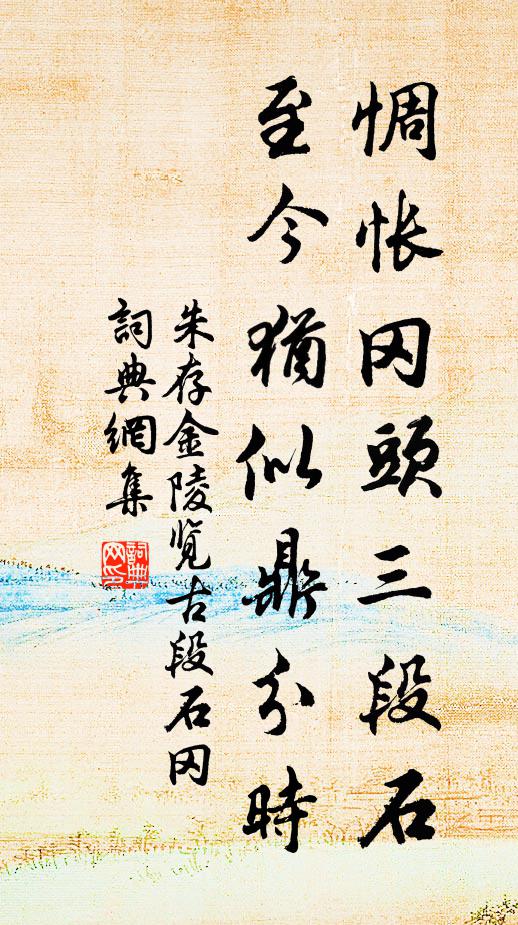 惆怅冈頭三段石
至今猶似鼎分時
朱存金陵览古段石冈
詞典網集
詞典
网印